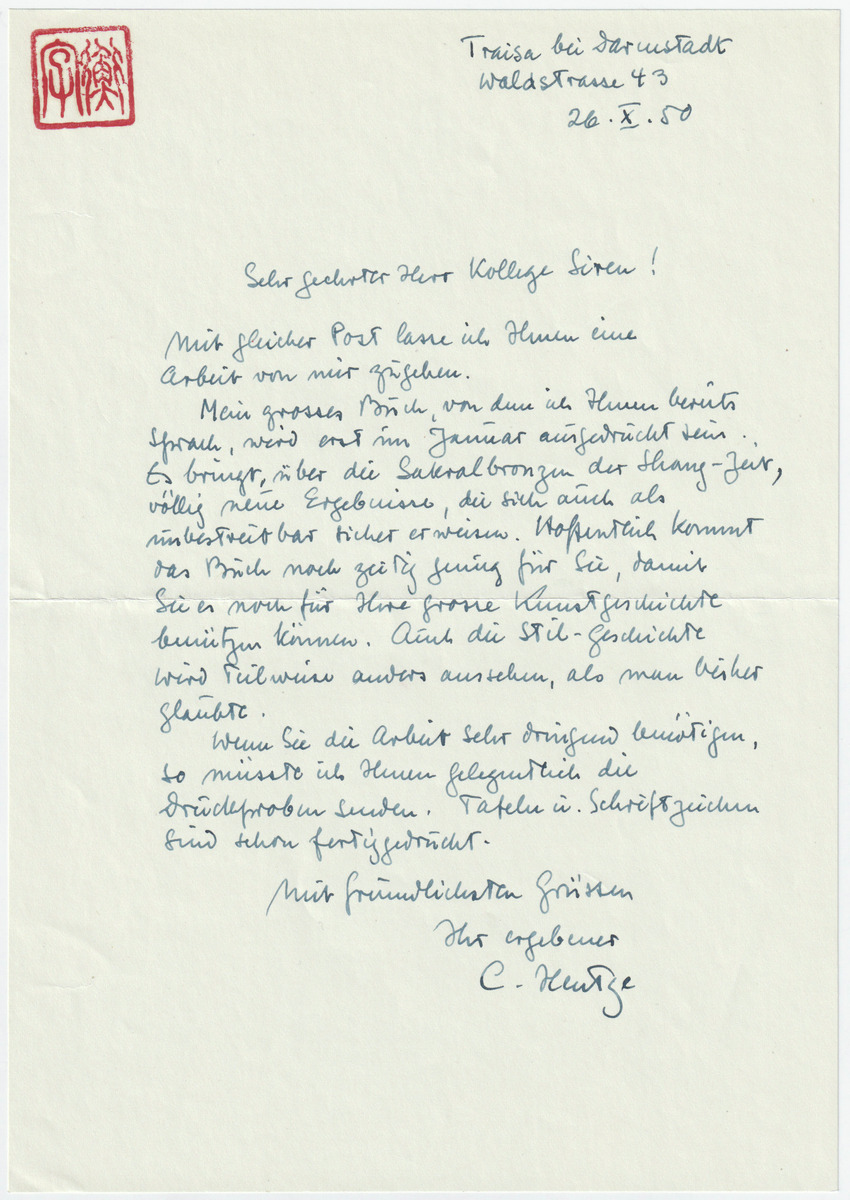 Traisa bei Darmstadt
Waldstrasse 43
26.X.50
Sehr geehrter Herr Kollege Siren!
Mit gleicher Post lasse ich Ihnen eine
Arbeit von mir zugehen.
Mein grosses Buch, von dem ich Ihnen bereits
sprach, wird erst im Januar ausgedruckt sein.
Es bringt, über die Sakralbronzen der Shang-Zeit,
völlig neue Ergebnisse, die sich auch als
unbestreitbar sicher erweisen. Hoffentlich kommt
das Buch noch zeitig genug für Sie, damit
Sie es noch für Ihre grosse Kunstgeschichte
benützen können. Auch die Stil-Geschichte
wird teilweise anders aussehen, als man bisher
glaubte.
Wenn Sie die Arbeit sehr dringend benötigen,
so müsste ich Ihnen gelegentlich die
Druckproben senden. Tafeln u. Schriftzeichen
sind schon fertiggedruckt.
Mit freundlichsten Grüssen
Ihr ergebener
C. Hentze